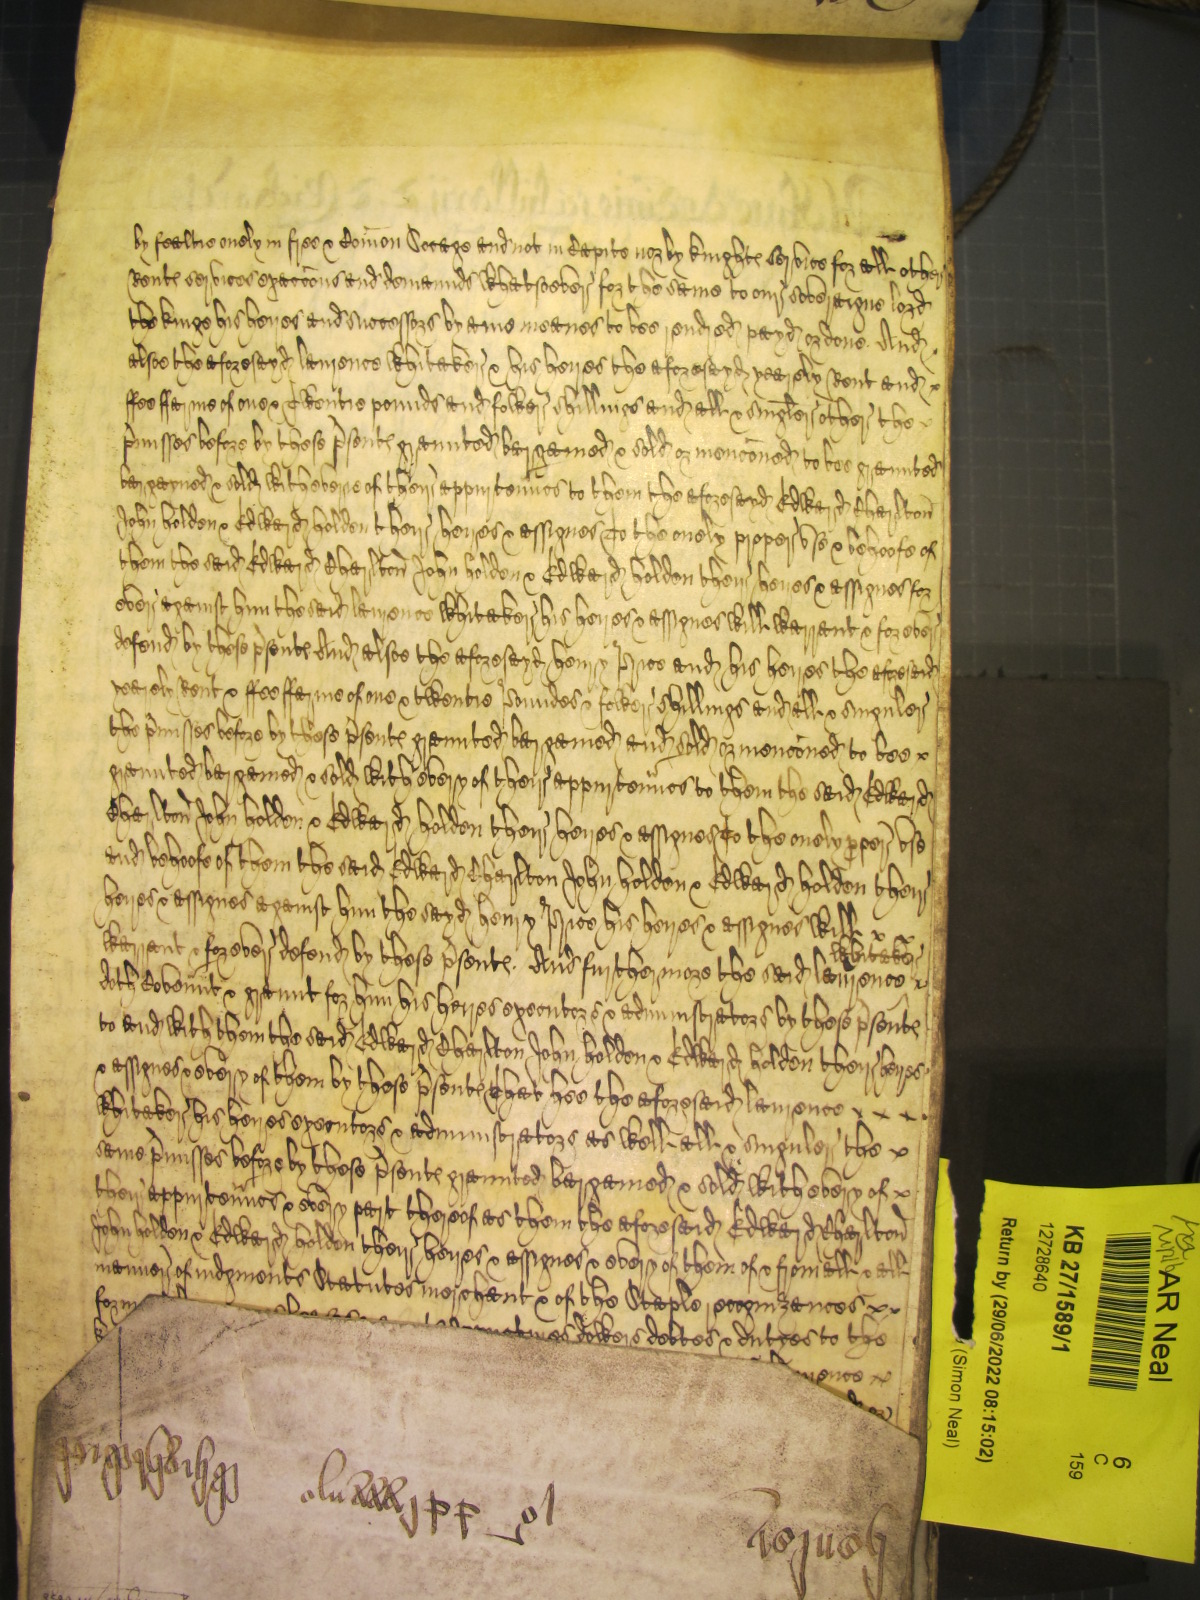 by fealtie onely in free & Comon Soccage and not in Capite nor by knights service for all other
Rents services exaccons and demaunds whatsoever for the same to our soveraigne lord
the kinge his heires and successors by anie meanes to bee rendred payd or done. And
alsoe the aforesayd laurence Whitaker & his heires the aforesayd yearely Rent and x
ffeeffarme of one & twentie pounds and fower shillings and all & singler other the x
pmisses before by these psents graunted bargained & sold or menconed to bee graunted
bargayned & sold with everie of their appurtennces to them the aforesayd Edward Charlton
John holden & Edward holden their heires & assignes To the onely proper use & behoofe of
them the said Edward Charlton John holden & Edward holden their heires & assignes for
ever against him the said laurence Whitaker his heires & assignes will warrant & forever
defend by these psents And alsoe the aforesayd henry Price and his heires the aforesaid
yearely Rent & ffeeffarme of one & twentie Poundes & fower shillings and all & singuler
the pmisses before by these psents graunted bargained and sold or menconed to bee x
graunted bargained & sold with every of their appurtennces to them the said Edward
Charlton John holden & Edward holden their heires & assignes To the onely pper use
and behoofe of them the said Edward Charlton John holden & Edward holden their
heires & assignes against him the sayd henry Price his heires & assignes will x x
warrant & forever defend by these psents. And furthermore the said laurence Whitaker x
doth Covennt & graunt for him his heires executors & administrators by these psents
to and with them the said Edward Charlton John holden & Edward holden their heires
& assignes & every of them by these psents That hee the aforesaid laurence x x x
Whitaker his heires executors & administrators as well all & singuler the x
same pmisses before by these psents graunted bargained & sold with every of x
their appurtennces & every part thereof as them the aforesaid Edward Charlton
John holden & Edward holden their heires & assignes & every of them of & from all & all
manner of iudgments Statutes merchant & of the Staple recognizances x x
form dowers debtes & dutyes to the
laurence x
or
KB 271/1589/1
12728640
Return by (29/06/2022 08:15:02)
(Simon Neal)
AR Neal
6
C
159